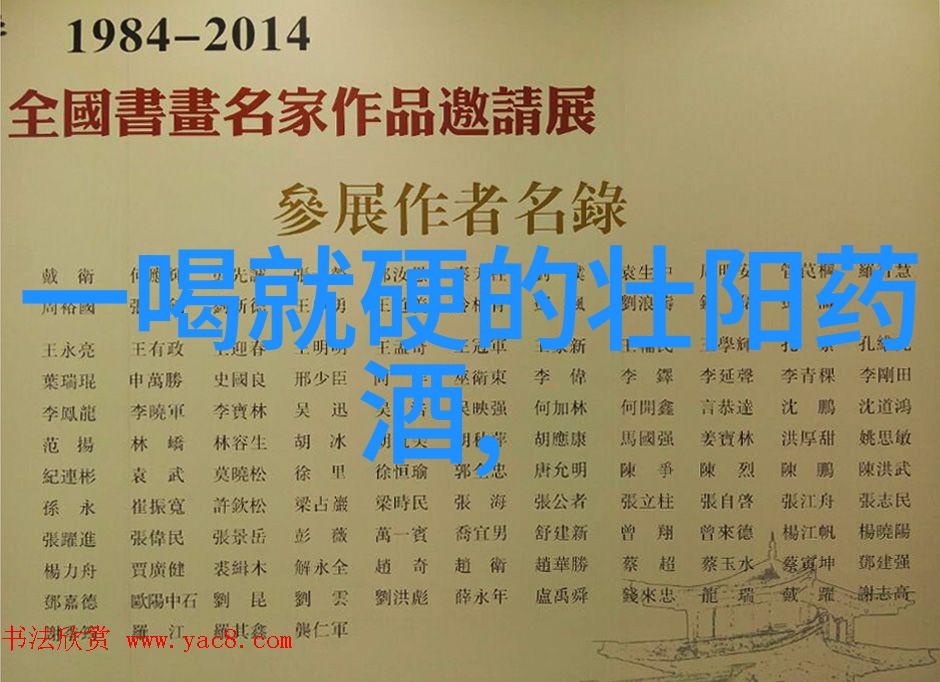 1984-2014
全國書畫名家作品邀請展
參展作者名錄
一喝就硬的壮阳药酒,
戴 衛
周裕國
王永亮 王有政 王迎春 王明明
葉瑞琨 申萬勝 史國良 邢少臣 巫衛東 李 偉 李 鐸 李延聲 李青稞 李剛田
李鳳龍 李曉軍 李寶林 吳 迅 吳映强 何加林 何開鑫 言恭達 沈 鵬 沈道鴻
范 揚 林 嶠 林容生 胡 冰 胡應康 馬國强 姜寶林 洪厚甜 姚思敏
紀連彬 袁 武 莫曉松 徐 里 徐恒瑜 唐允明 陳 爭 陳 烈 陳 鵬 陳洪武
孫 永 崔振寬 許欽松 梁占巖 梁時民 張 海 張公者 張立柱 張自啓 張江舟 張志民
張躍進 張偉民 張景岳 彭 薇 萬一賓 喬宜男 舒建新 曾 翔 曾來德 楊江帆 楊曉陽
楊力舟 賈廣健 裘緝木 解永全 趙 奇 趙 衛 趙華勝 蔡 超 蔡玉水 蔡寅坤 鄧建强
鄧嘉德 歐陽中石 劉 昆 劉 雲 劉洪彪 薛永年 盧禹舜 錢來忠 龍 瑞 戴 躍 謝志高
羅 江 羅其鑫 龔仁軍
书法欣赏 www.yac8.com